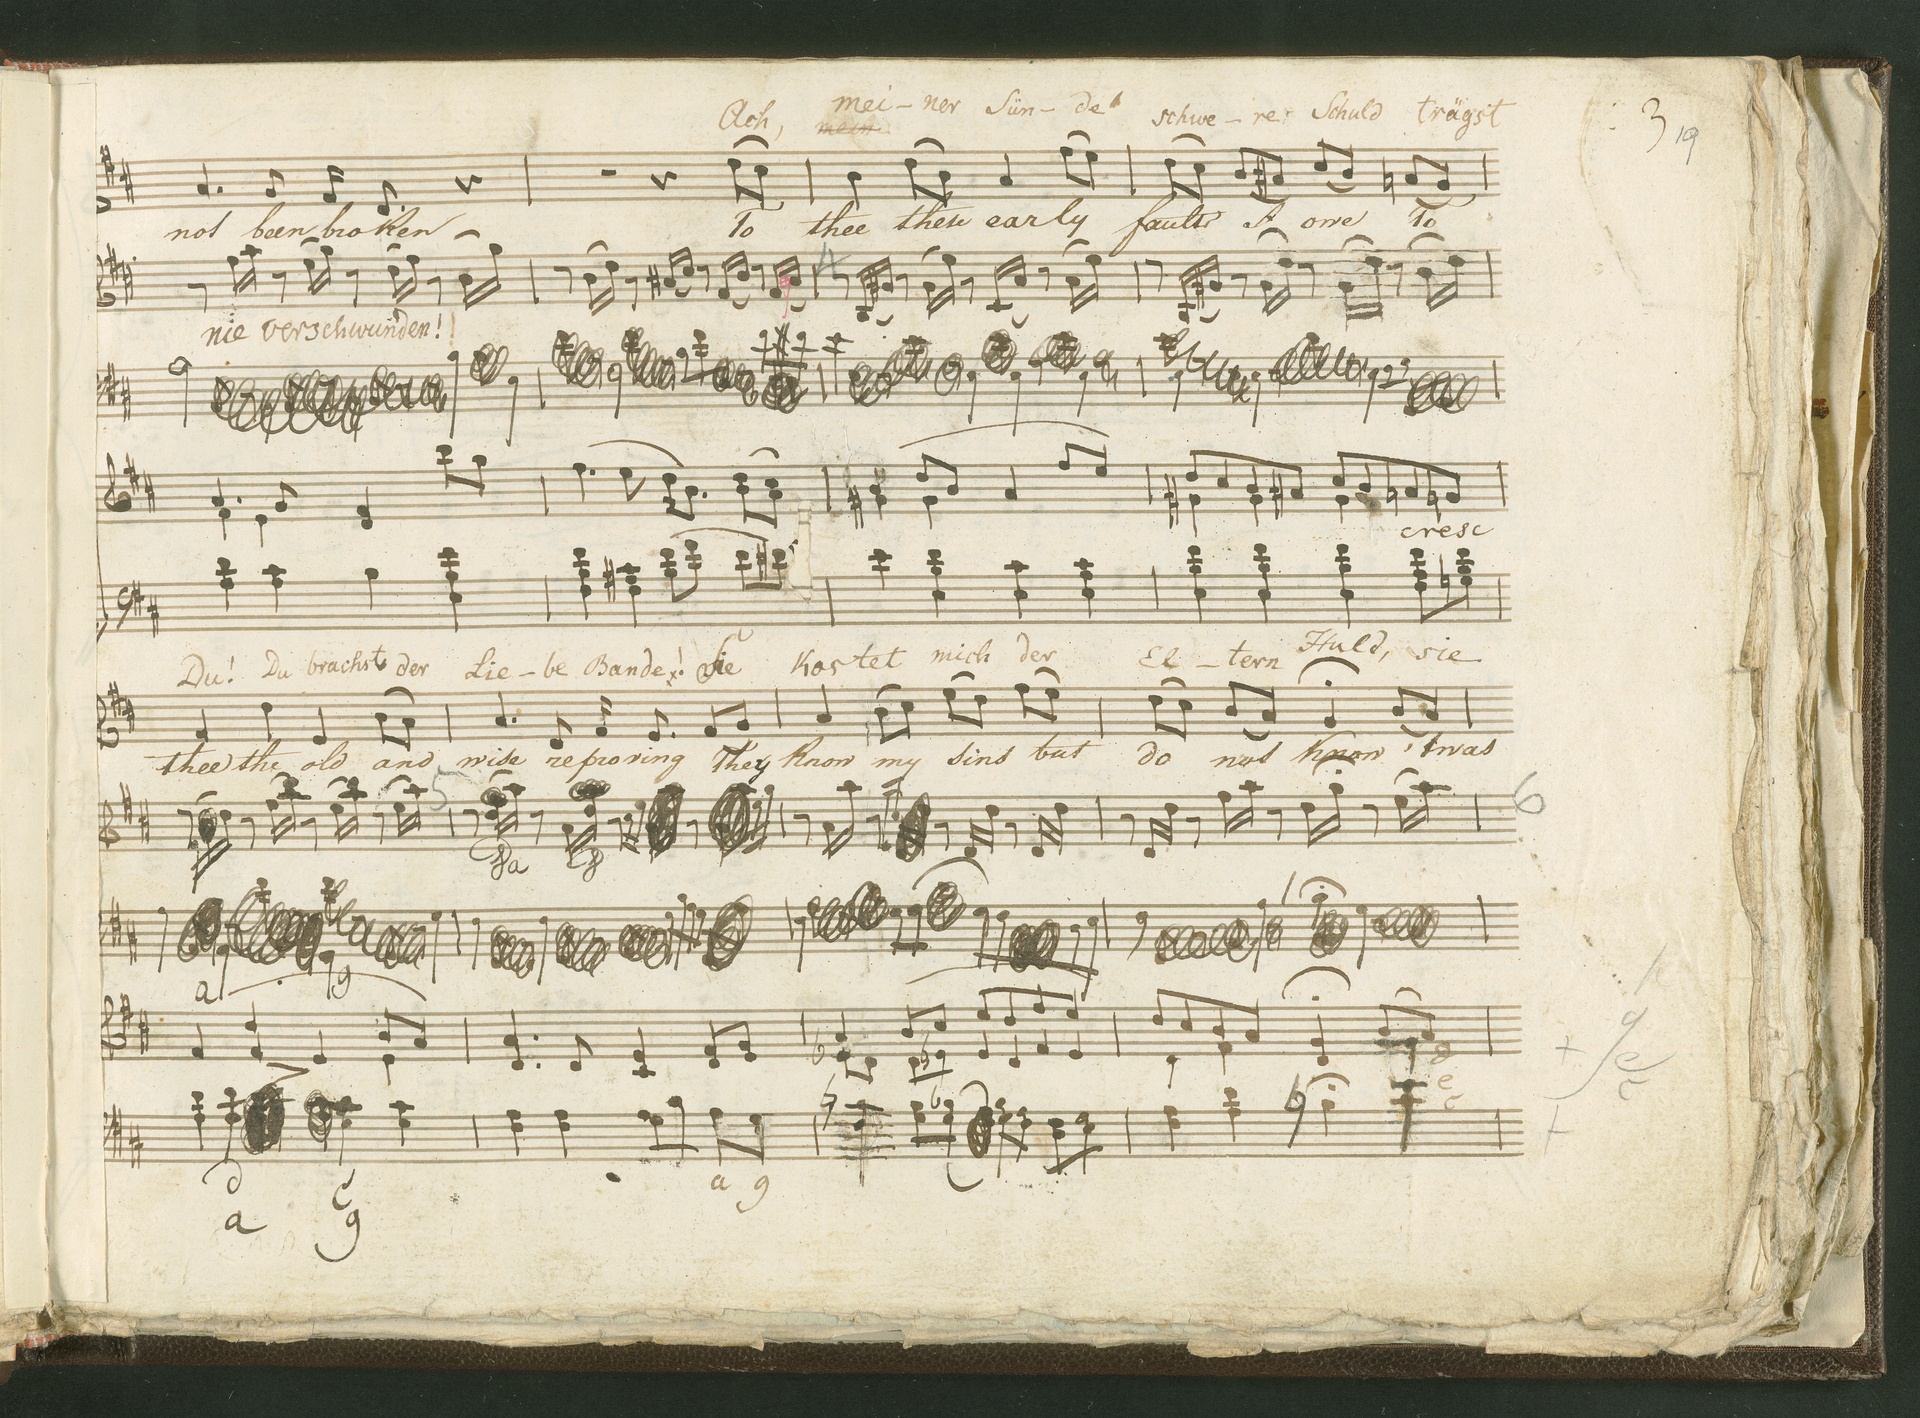 Ach, mei-ner Sün-de schwe-re Schuld trägst
mein
3 19
not been broken To thee these early faults I owe To
4
nie verschwunden!
cresc
Du! Du brachst der Lie-be Bande! Sie kostet mich der El-tern Huld, sie
thee the old and wise reproving They know my sins but do not know 'twas
5 6
a g
g
e
e c
d c a g
a g